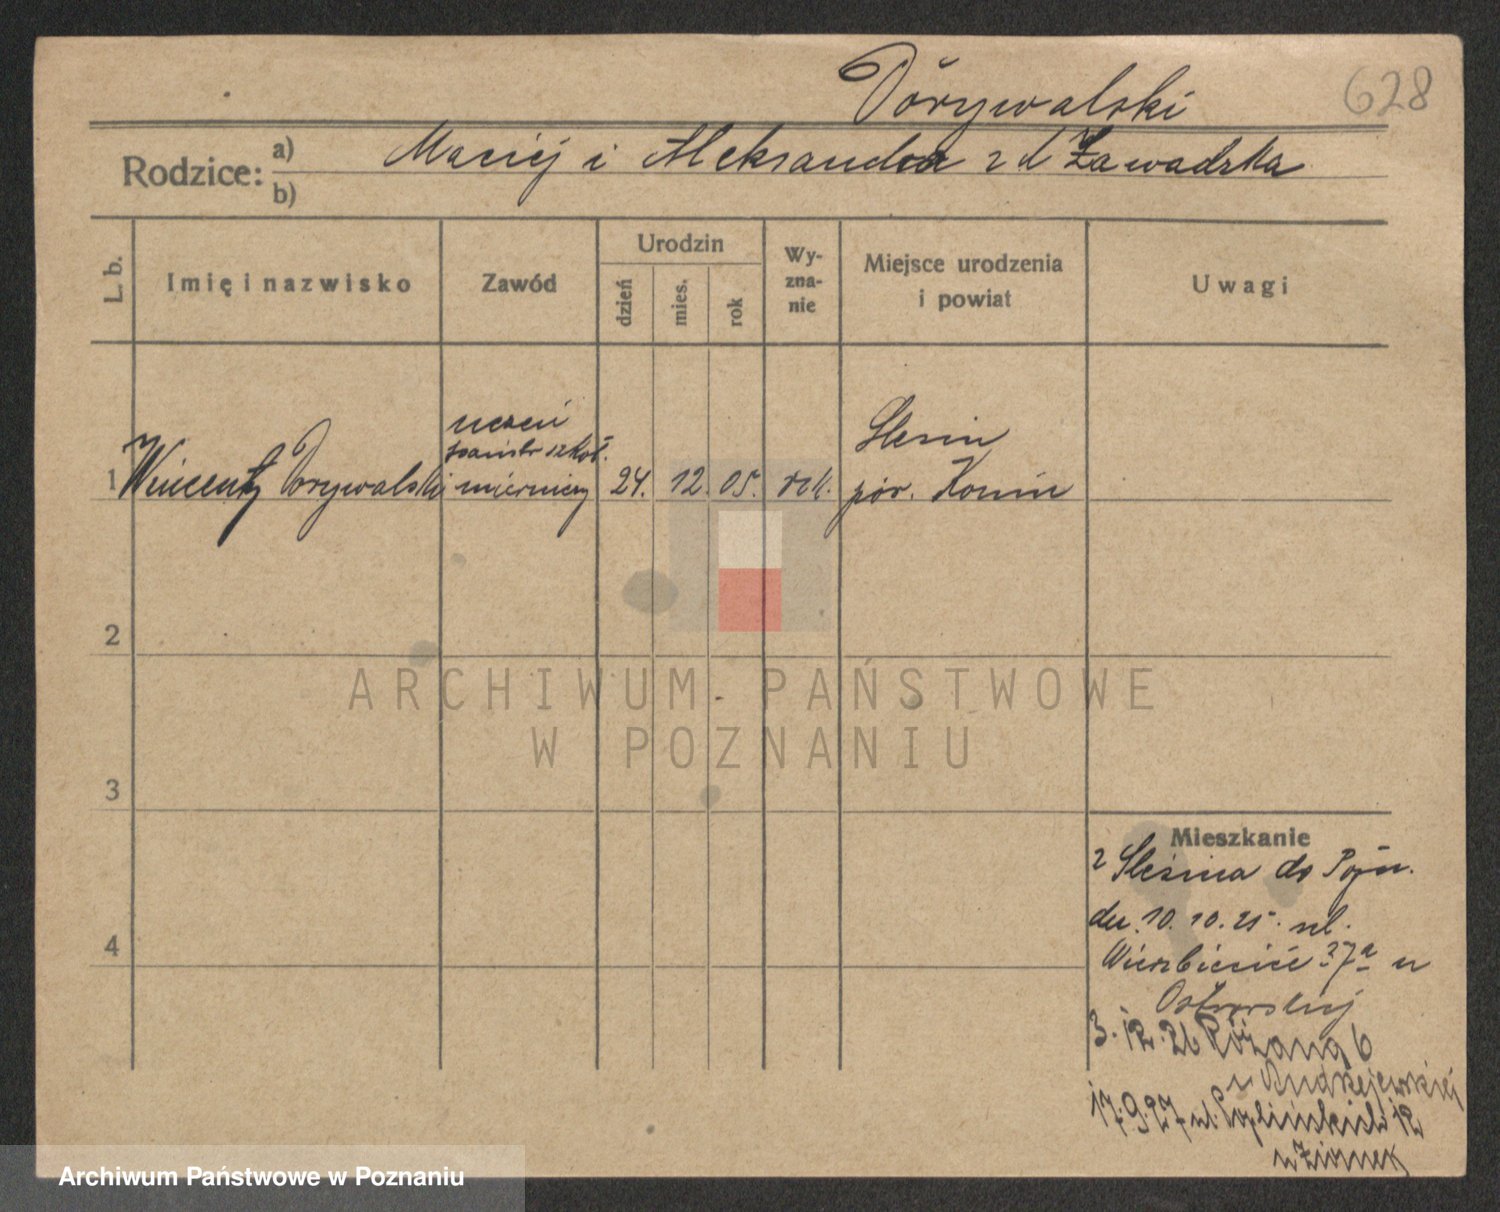 Dorywalski
628
Rodzice: a) Maciej i Aleksandra z d Zawadzka
b)
L. b.
Imię i nazwisko
Zawód
Urodzin
dzień
mies.
rok
Wy-
zna-
nie
Miejsce urodzenia
i powiat
Uwagi
uczeń
państw szkoł.
mierniczy
1 Wincenty Dorywalski
24. 12. 05. rzk.
Slesin
pow. Konin
2
3
4
ARCHIWUM PAŃSTWOWE
W POZNANIU
Mieszkanie
z Slesina do Pozn.
dn. 10. 10. 25. ul.
Wierzbięcice 37a u
3. 12. 26 Różana 6
u Andrzejewskiej
17. 9. 27 ul. 12
Archiwum Państwowe w Poznaniu